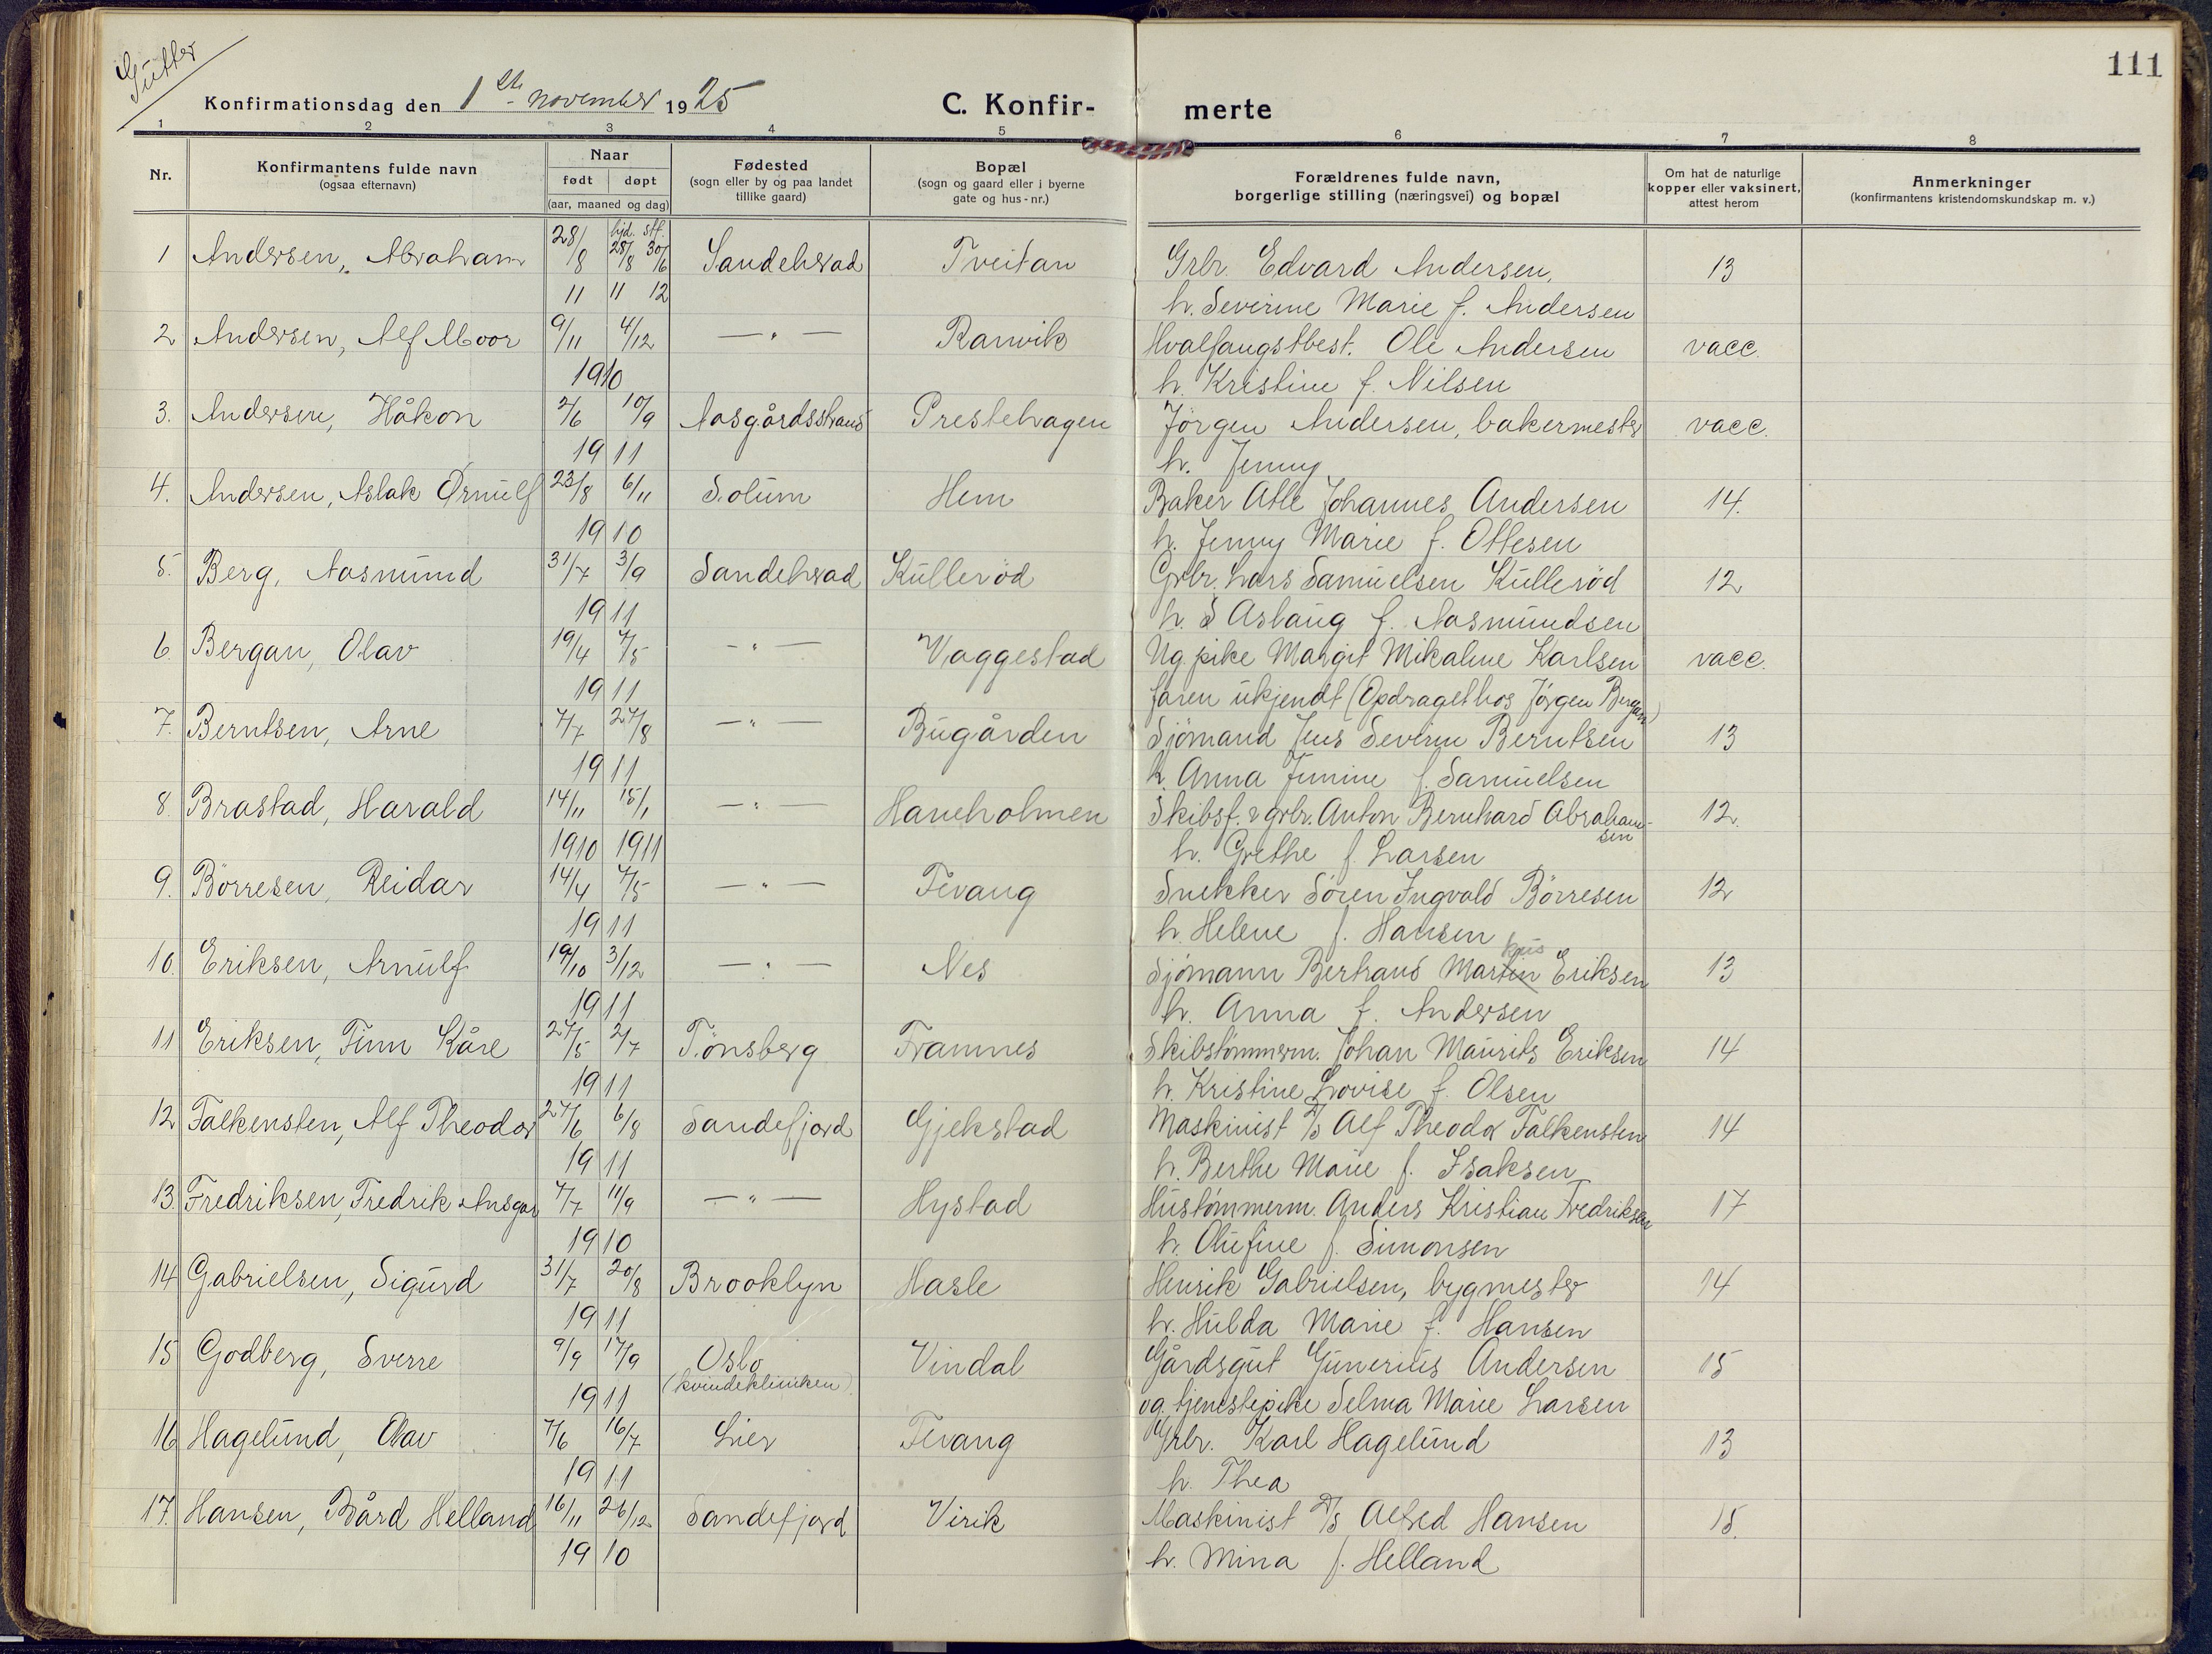 Gutter
111
Konfirmationsdag den 1ste november 1925
C. Konfir- merte
1 2 3 4 5 6 7 8
Nr.
Konfirmantens fulde navn
(ogsaa efternavn)
Naar
født døpt
(aar, maaned og dag)
Fødested
(sogn eller by og paa landet
tillike gaard)
Bopæl
(sogn og gaard eller i byerne
gate og hus-nr.)
Forældrenes fulde navn,
borgerlige stilling (næringsvei) og bopæl
Om hat de naturlige
kopper eller vaksinert,
attest herom
Anmerkninger
(konfirmantens kristendomskundskap m. v.)
hjd. stf.
1 Andersen, Abraham 28/8 28/8 30/6 Sandeherad Tveitan Grbr. Edvard Andersen, 13
11 11 12 h. Severine Marie f. Andersen
2 Andersen, Alf Moor 9/11 4/12 — " — Ranvik Hvalfangstbest. Ole Andersen vacc.
1910 h. Kristine f. Nilsen
3. Andersen, Håkon 2/6 10/9 Aasgårdsstrand Prestehagen Jörgen Andersen, bakermester vacc.
1911 h. Jenny
4. Andersen, Aslak Ørnulf 23/8 6/11 Solum Hem Baker Atle Johannes Andersen 14.
1910 h. Jenny Marie f. Ottesen
5. Berg, Aasmund 31/7 3/9 Sandeherad Kulleröd Grbr. Lars Samuelsen Kulleröd 12
1911 h. S Aslaug f. Aasmundsen
6. Bergan, Olav 19/4 7/5 — " — Vaggestad Ug. pike Margit Mikaline Karlsen vacc.
1911 faren ukjendt (Opdraget hos Jörgen Bergan)
7. Berntsen, Arne 7/7 27/8 — " — Bugården Sjömand Jens Severin Berntsen 13
1911 h. Anna Junine f. Samuelsen
8. Brastad, Harald 14/11 15/1 — " — Haneholmen Skibsf. & grbr. Anton Bernhard Abrahamsen 12.
1910 1911 h. Grethe f. Larsen
9. Börresen, Reidar 14/4 7/5 — " — Fevang Snekker Sören Ingvald Börresen 12
1911 h. Helene f. Hansen
10. Eriksen, Arnulf 19/10 3/12 — " — Nes Sjömann Bertrand Martin Eriksen 13
1911 h. Anna f. Andersen
11 Eriksen, Finn Kåre 27/5 2/7 Tönsberg Framnes Skibstömmerm. Johan Maurits Eriksen 14
1911 h. Kristine Lovise f. Olsen
12 Falkensten, Alf Theodor 27/6 6/8 Sandefjord Gjekstad Maskinist D/S Alf Theodor Falkensten 14
1911 h. Berthe Marie f. Isaksen
13. Fredriksen, Fredrik Ansgar 7/7 11/9 — " — Hystad Hustömmerm. Anders Kristian Fredriksen 17
1910 h. Olufine f. Simonsen
14 Gabrielsen, Sigurd 31/7 20/8 Brooklyn Hasle Henrik Gabrielsen, bygmester 14
1911 h. Hulda Marie f. Hansen
15 Godberg, Sverre 9/9 17/9 Oslo Vindal Gårdsgut Gunerius Andersen 15
1911 (kvindekliniken) og tjenestepike Selma Marie Larsen
16 Hagelund, Olav 7/6 16/7 Lier Fevang Grbr. Karl Hagelund 13
1911 h. Thea
17. Hansen, Bård Helland 16/11 26/12 Sandefjord Virik Maskinist D/S Alfred Hansen 15.
1910 h. Mina f. Helland